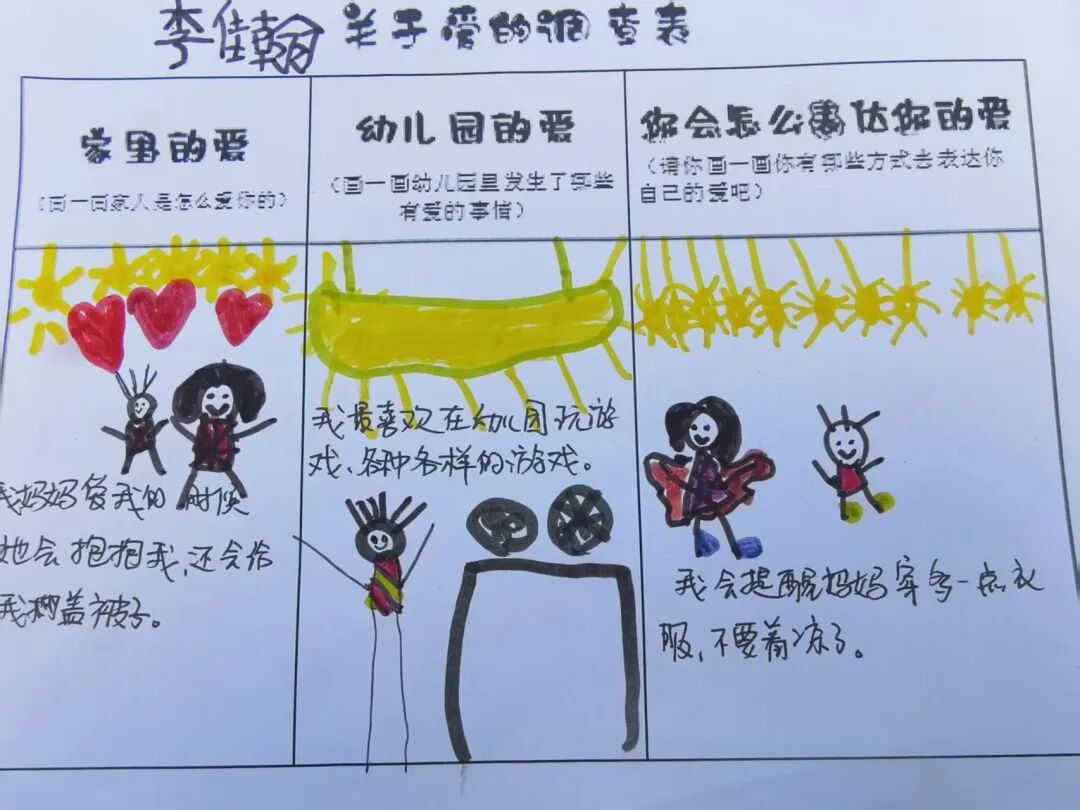 李佳翰 关于爱的调查表
家里的爱
（画一画家人是怎么爱你的）
幼儿园的爱
（画一画幼儿园里发生了哪些
有爱的事情）
你会怎么表达你的爱
（请你画一画你有哪些方式去表达你
自己的爱吧）
我妈妈爱我的时候
她会抱抱我，还会给
我掖盖被子。
我最喜欢在幼儿园玩游
戏、各种各样的游戏。
我会提醒妈妈穿多一点衣
服，不要着凉了。